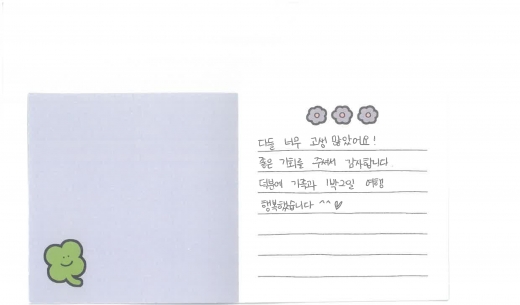 다들 너무 고생 많았어요!
좋은 기회를 주셔서 감사합니다.
덕분에 가족과 1박2일 여행
행복했습니다 ^^♡